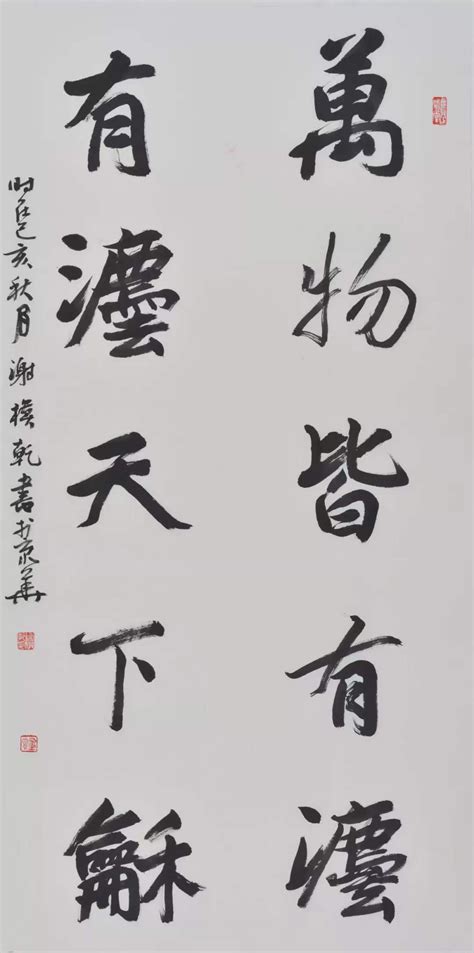 萬物皆有灋
有灋天下龢
时在己亥秋月 谢乾書於京華